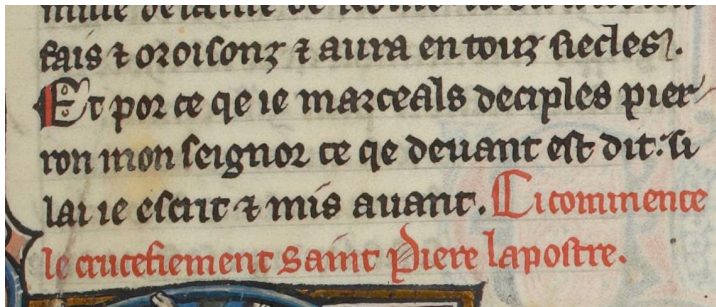 fais ⁊ oroisonz ⁊ aura en touz siecles.
Et por ce qe ie marceals deciples pier
ron mon seignor ce qe deuant est dit. si
lai ie escrit ⁊ mis auant. Ci commence
le crucefiement saint Piere lapostre.